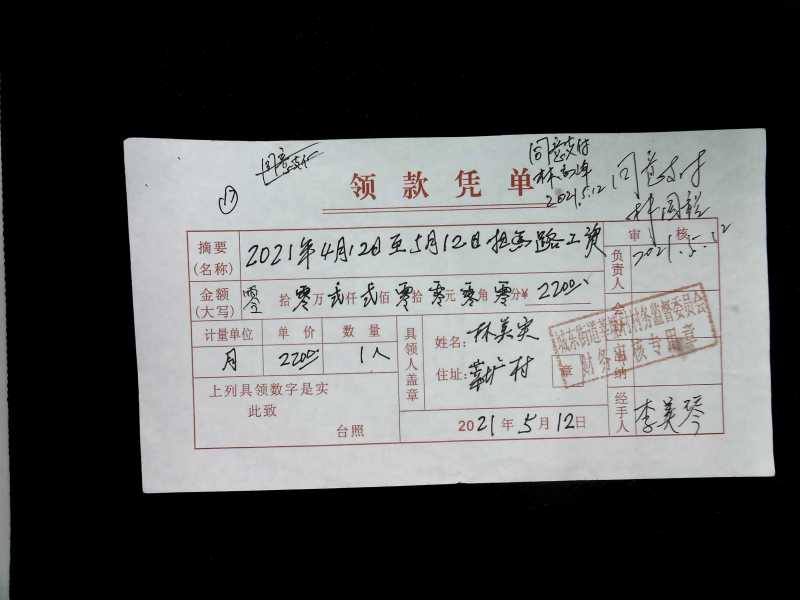 同意支付
同意支付
林
2021.5.12
同意支付
林国
2021.5.12
⑰
领款凭单
摘要(名称) 2021年4月12日至5月12日 路工资
审核
负责人
金额(大写) 零拾零万贰仟贰佰零拾零元零角零分¥2200.
计量单位 单价 数量
月 2200. 1人
具领人盖章
姓名:林美
住址: 村
章
城东街道 村村务监督委员会
财务审核专用章
会
出纳
上列具领数字是实
此致
台照
2021年5月12日
经手人 李美琴